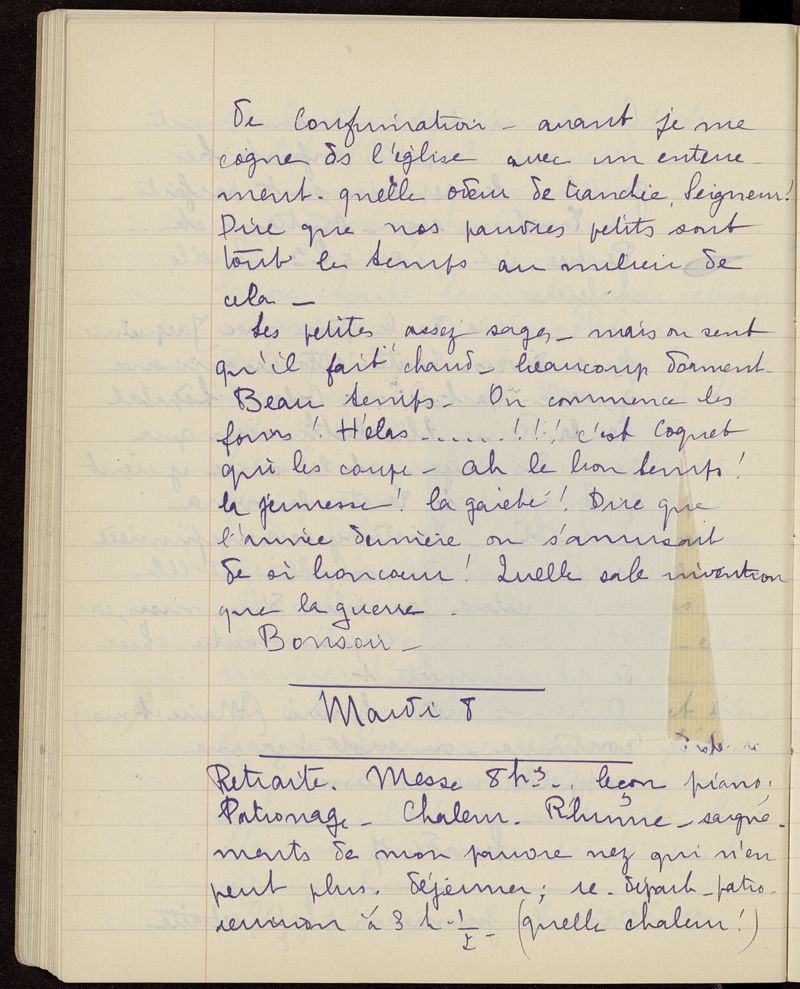 de Confirmation - avant je me
cogne ds l'église avec un enterre-
ment. quelle odeur de tranchée, Seigneur!
Dire que nos pauvres petits sont
tout le temps au milieu de
cela -
Les petites assez sages - mais on sent
qu'il fait chaud - beaucoup dorment -
Beau temps - On commence les
foins! Hélas ......!!!! c'est Coquet
qui les coupe - ah le bon temps!
la jeunesse! la gaieté! Dire que
l'année dernière on s'amusait
de si bon coeur! Quelle sale invention
que la guerre.
Bonsoir -
Mardi 8
Retraite. Messe 8 h. leçon piano,
Patronage - Chaleur. Rhume - saigne-
ments de mon pauvre nez qui n'en
peut plus. déjeuner; re-départ - patro.
réunion à 3 h. 1/2 - (quelle chaleur!)